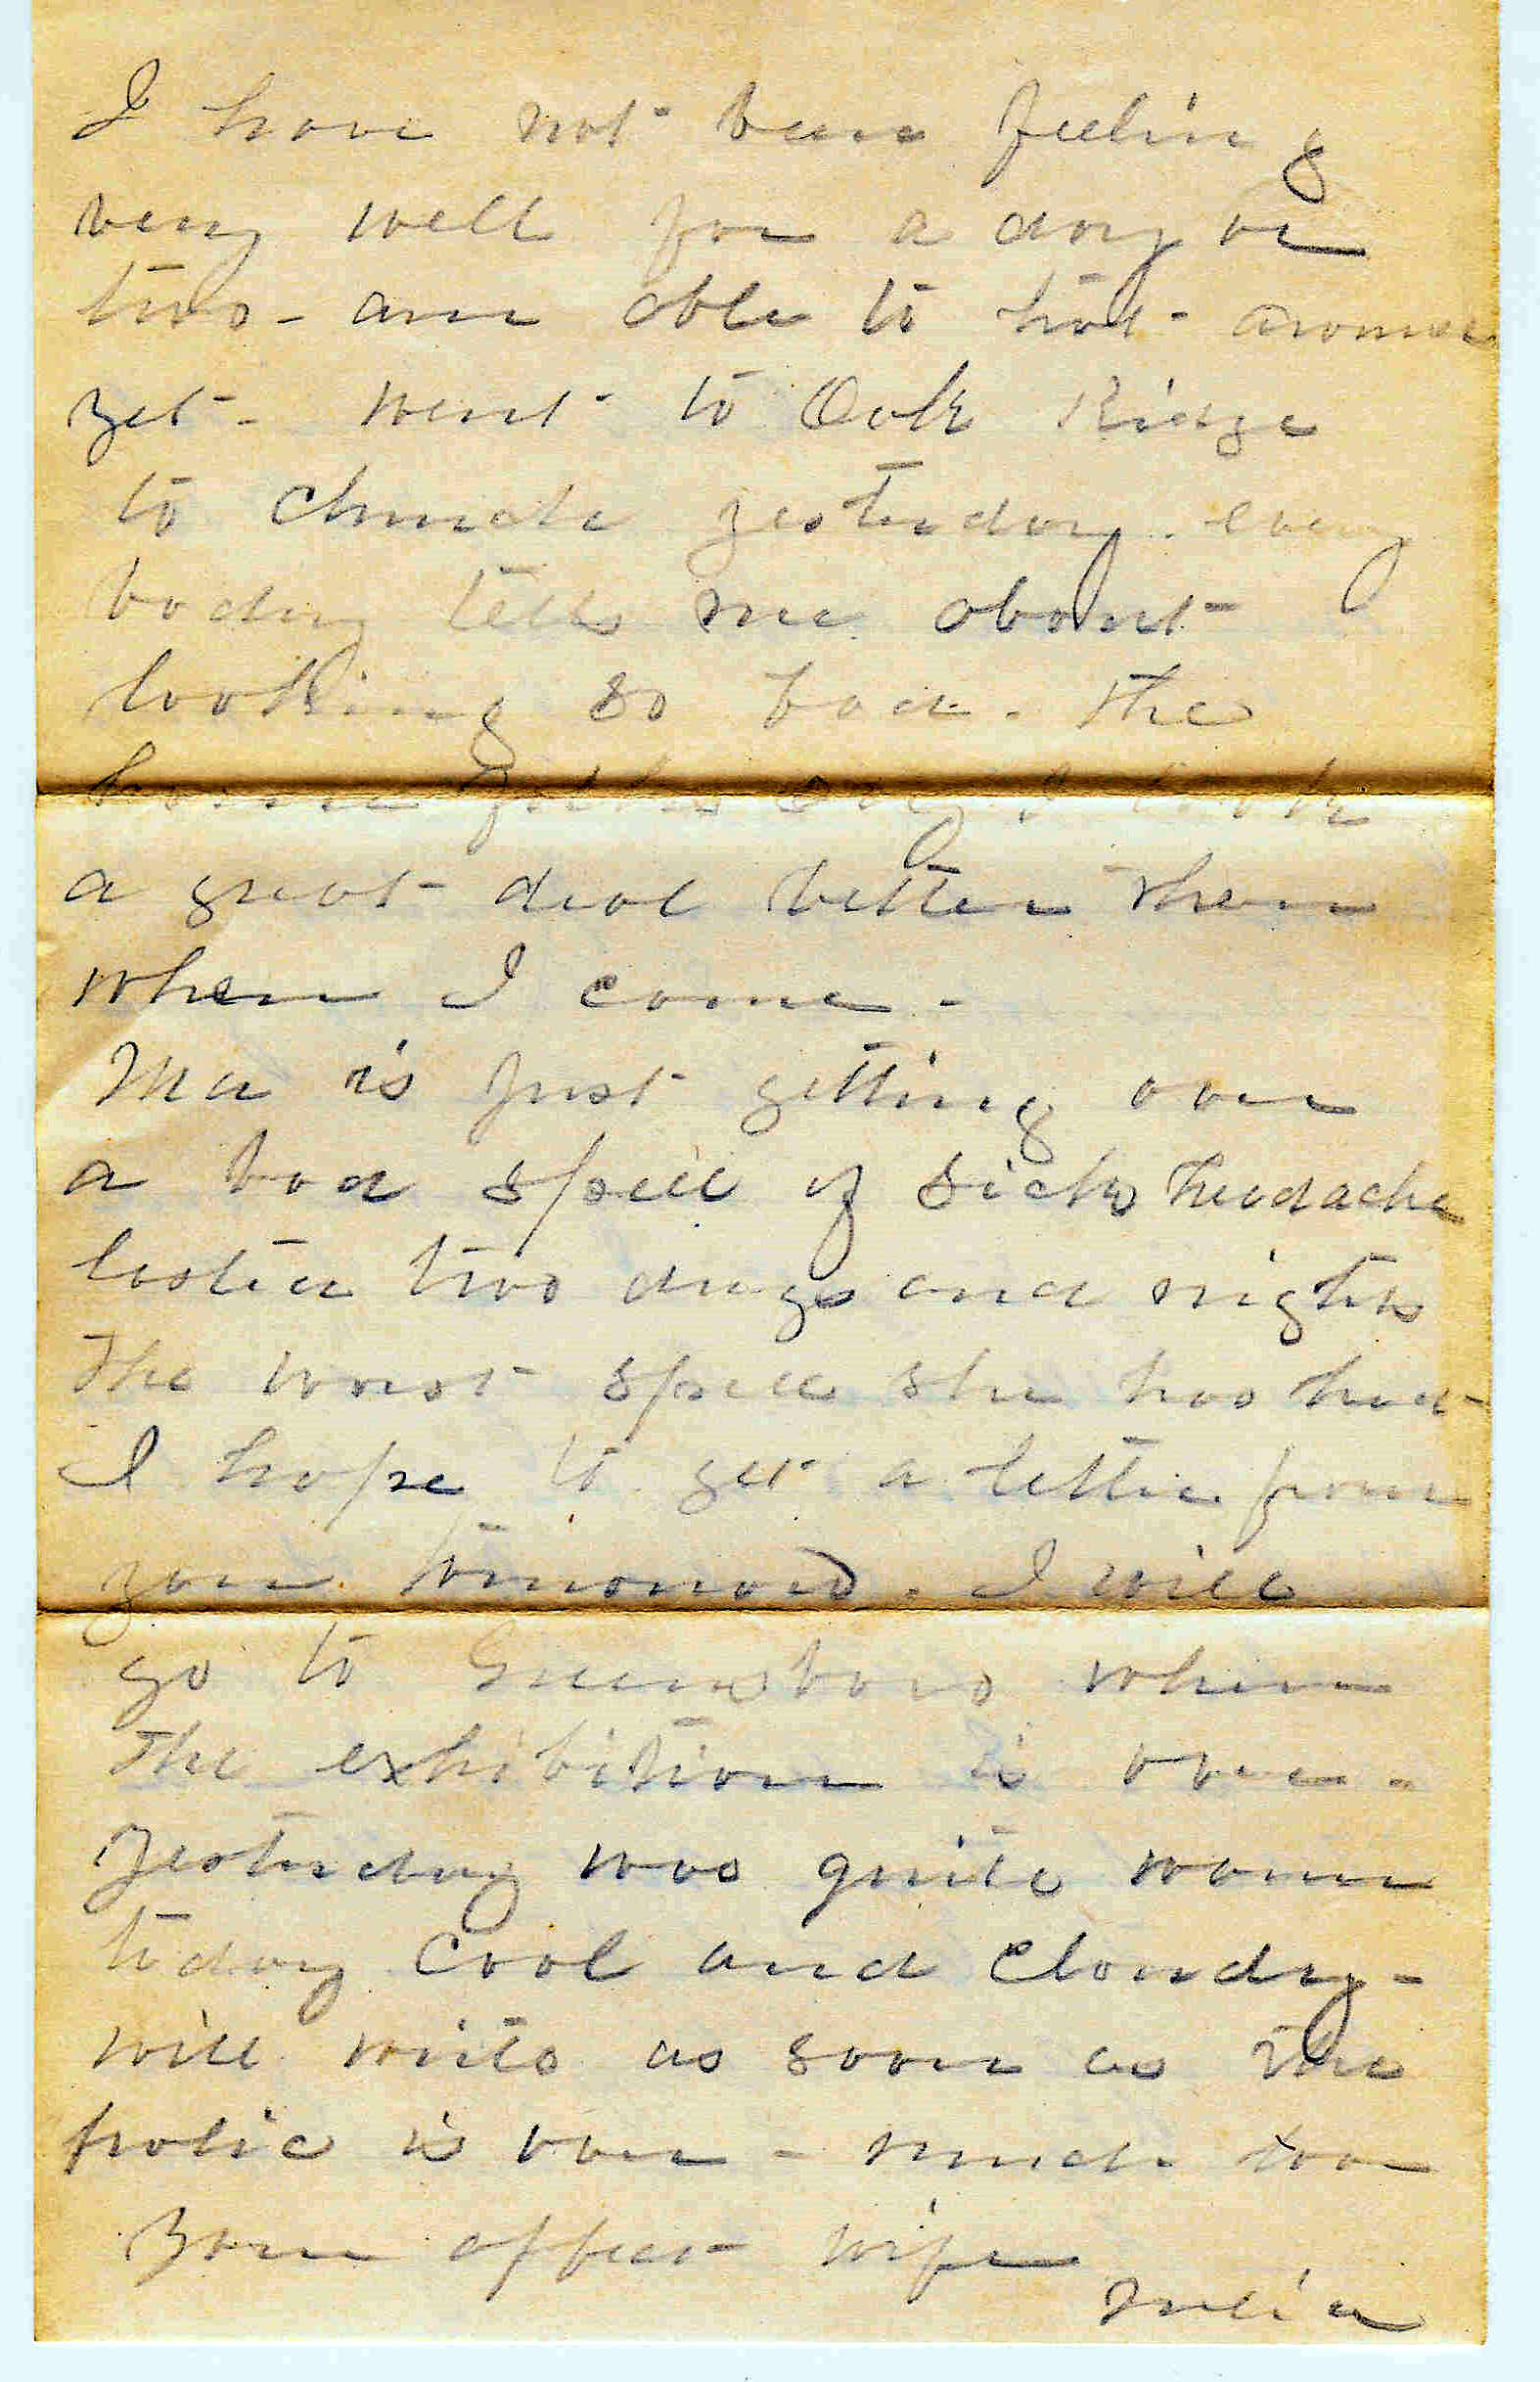 I have not been feeling
very well for a day or
two - am able to trot around
yet - went to Oak Ridge
to Church yesterday. every
body tells me about
looking so bad. The
home folks say I look
a great deal better than
when I come -
Ma is just getting over
a bad spell of sick headache
lasted two days and nights
The worst spell she has had -
I hope to get a letter from
you tomorrow. I will
go to Greensboro when
the exhibition is over -
Yesterday was quite warm
today cool and cloudy -
will write as soon as the
frolic is over - much love
Your affect wife
Julia